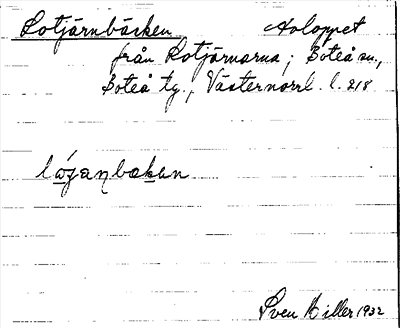 Lotjärnbäcken Avloppet
från Lotjärnarna; Boteå sn.,
Boteå tg., Västernorrl. l. 218
Sven Hiller 1932